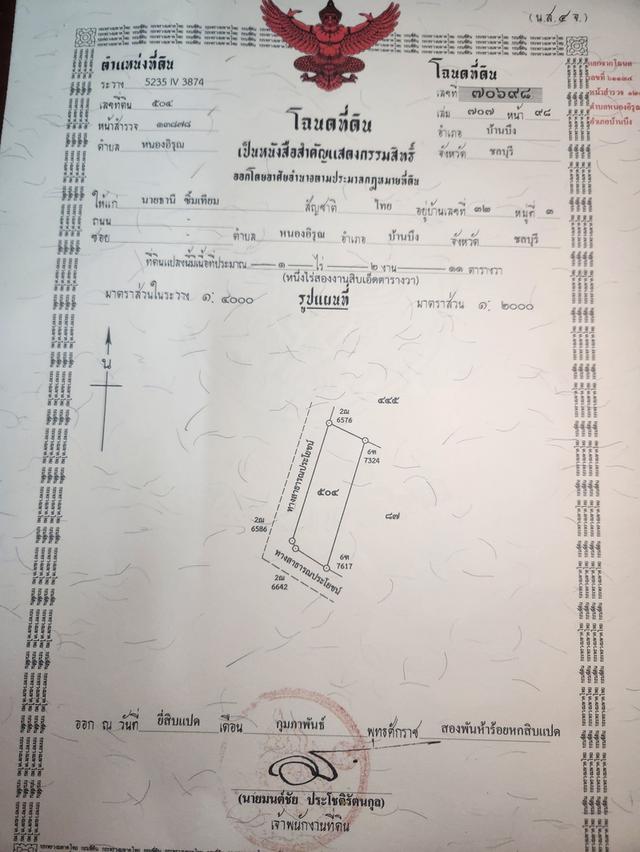 (น.ส. ๔ จ.)
ตำแหน่งที่ดิน
ระวาง 5235 IV 3874
เลขที่ดิน ๕๐๔
หน้าสำรวจ ๑๓๘๗๘
ตำบล หนองอิรุณ
โฉนดที่ดิน
เลขที่ ๗๐๖๙๘
เล่ม ๗๐๗ หน้า ๙๘
อำเภอ บ้านบึง
จังหวัด ชลบุรี
โฉนดที่ดิน
เป็นหนังสือสำคัญแสดงกรรมสิทธิ์
ออกโดยอาศัยอำนาจตามประมวลกฎหมายที่ดิน
ให้แก่ นายธานี ซิ้มเทียม สัญชาติ ไทย อยู่บ้านเลขที่ ๓๒ หมู่ที่ ๓
ถนน -
ซอย - ตำบล หนองอิรุณ อำเภอ บ้านบึง จังหวัด ชลบุรี
ที่ดินแปลงนี้มีเนื้อที่ประมาณ ๑ ไร่ ๒ งาน ๑๑ ตารางวา
(หนึ่งไร่สองงานสิบเอ็ดตารางวา)
มาตราส่วนในระวาง ๑: ๔๐๐๐ รูปแผนที่ มาตราส่วน ๑: ๒๐๐๐
น
๔๔๕
2ฌ
6576
6ฑ
7324
ทางสาธารณประโยชน์
๕๐๔
๘๗
2ฌ
6586
6ฑ
7617
ทางสาธารณประโยชน์
2ฌ
6642
ออก ณ วันที่ ยี่สิบแปด เดือน กุมภาพันธ์ พุทธศักราช สองพันห้าร้อยหกสิบแปด
(นายมนต์ชัย ประโชติรัตนกุล)
เจ้าพนักงานที่ดิน